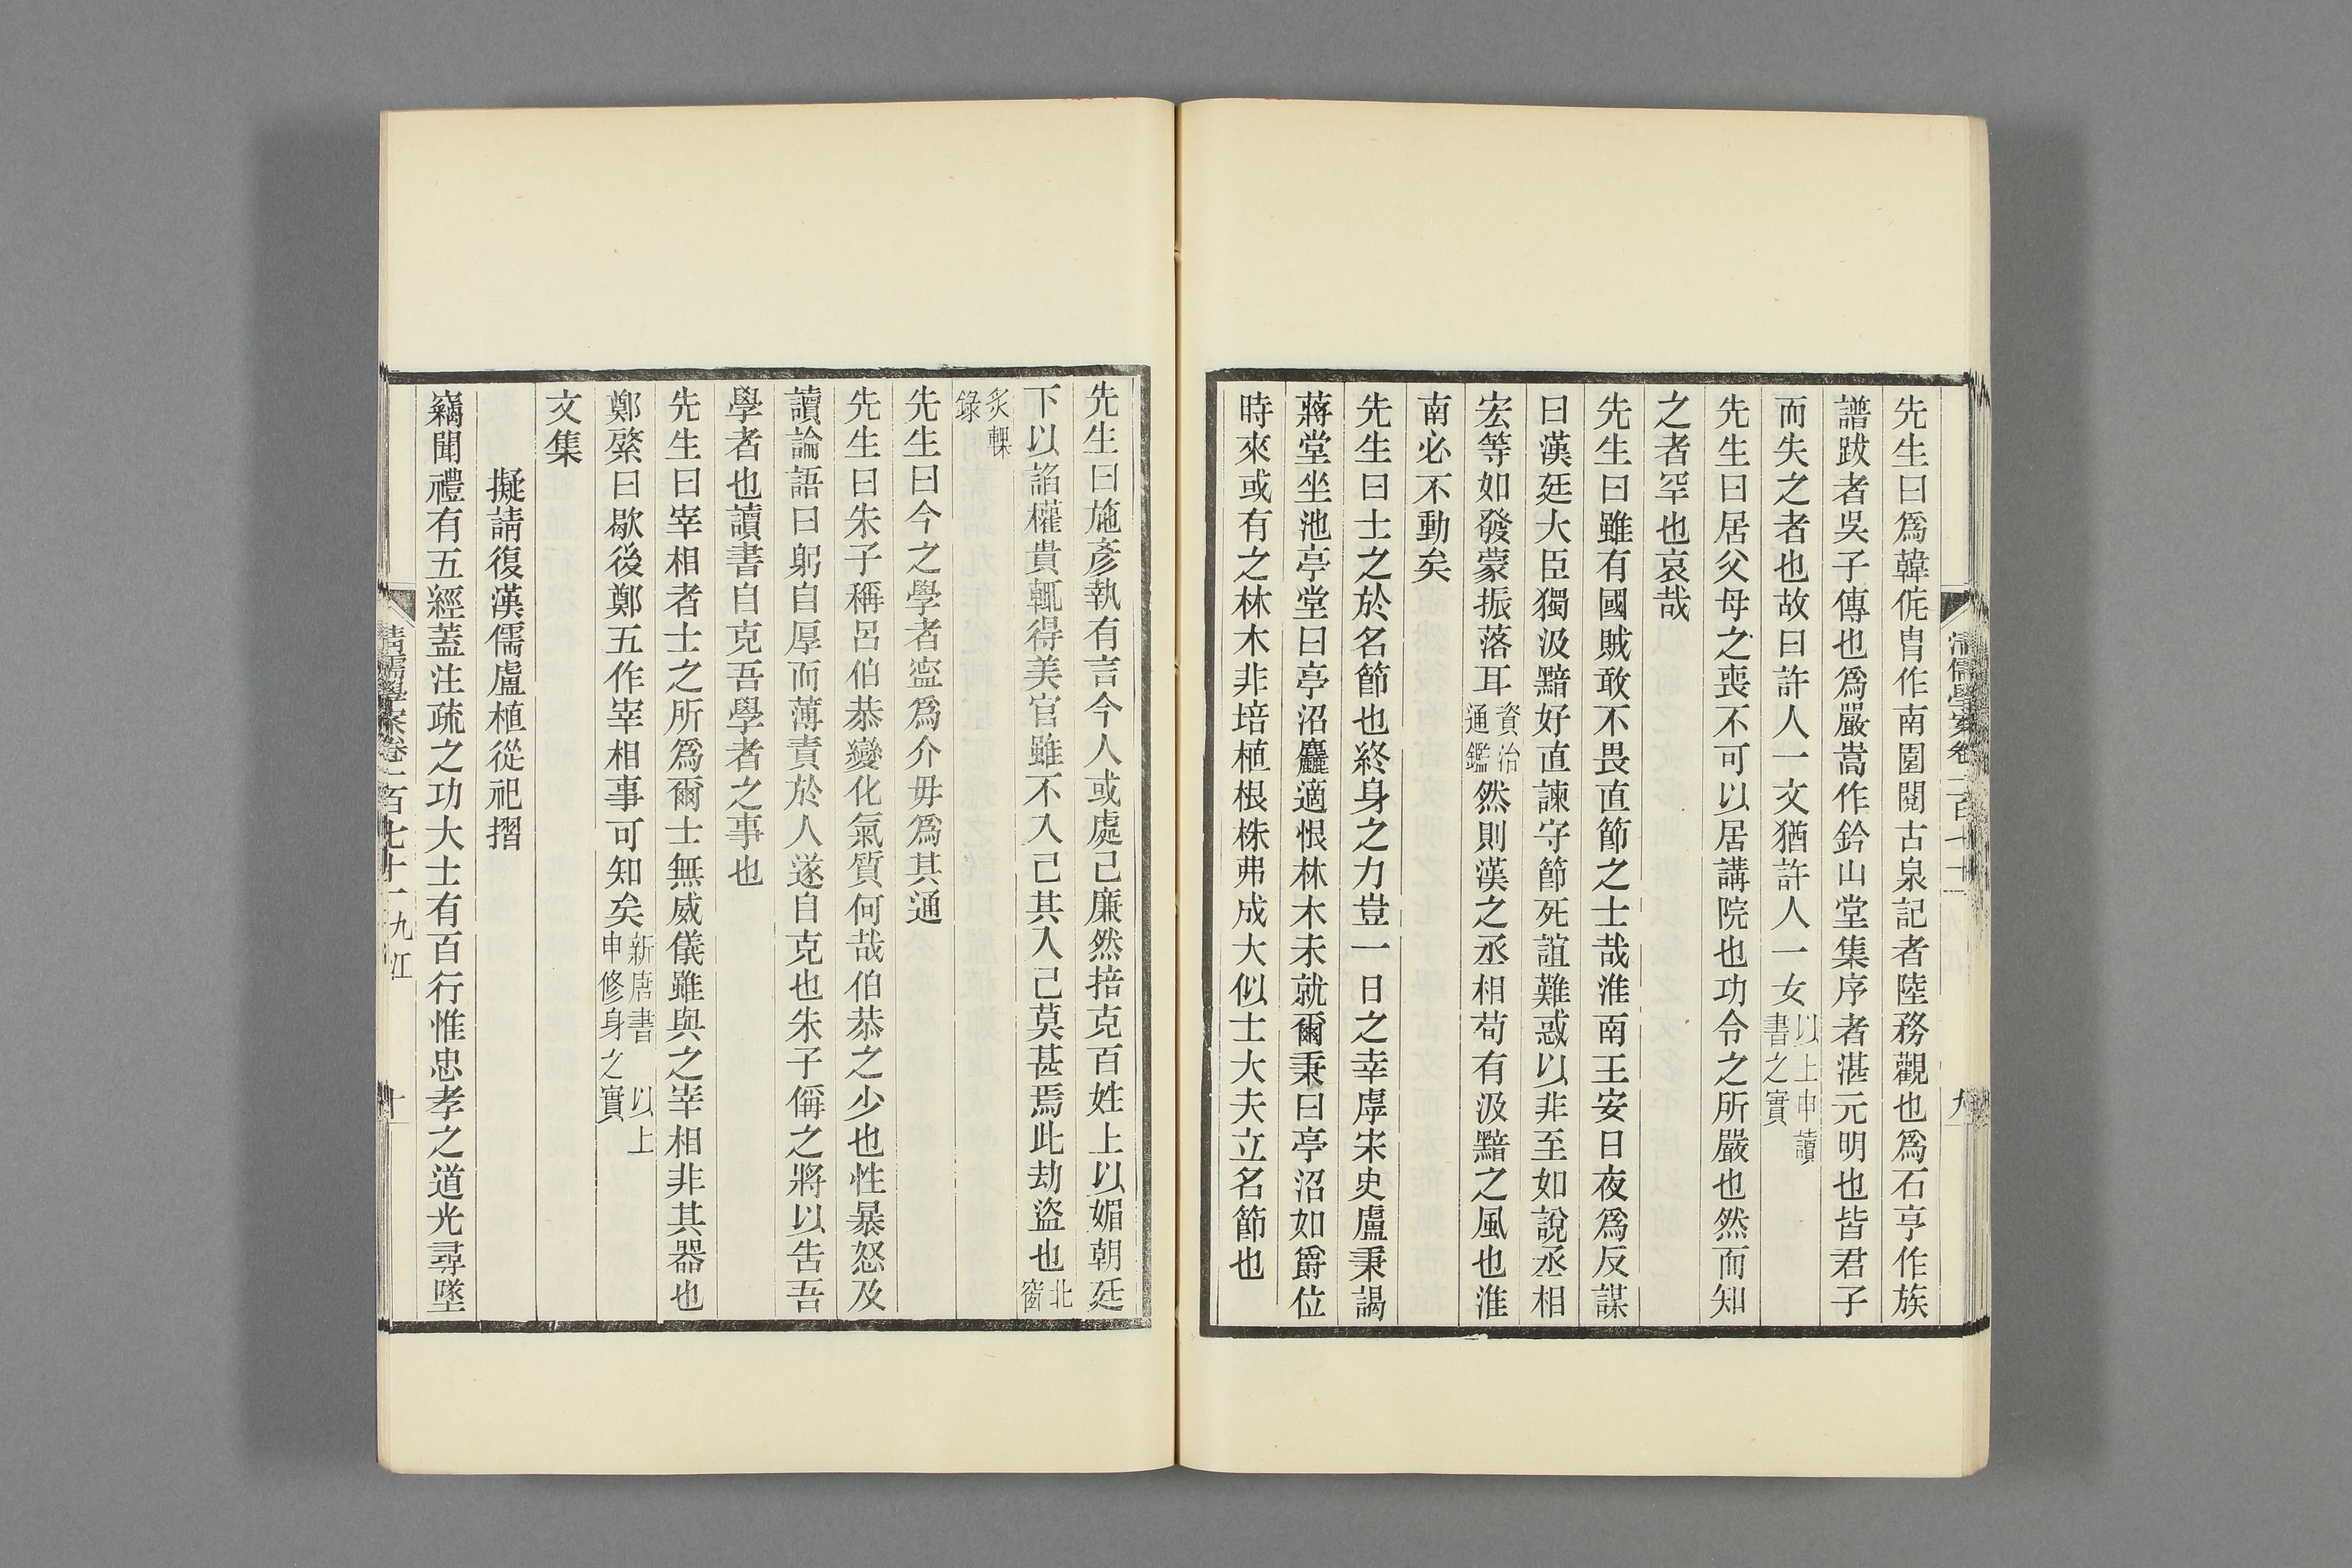 清儒學案卷一百七十一
九
先生曰爲韓侂冑作南園閱古泉記者陸務觀也爲石亨作族
譜跋者吳子傳也爲嚴嵩作鈐山堂集序者湛元明也皆君子
而失之者也故曰許人一文猶許人一女以上申讀書之實
先生曰居父母之喪不可以居講院也功令之所嚴也然而知
之者罕也哀哉
先生曰雖有國賊敢不畏直節之士哉淮南王安日夜爲反謀
曰漢廷大臣獨汲黯好直諫守節死誼難惑以非至如說丞相
宏等如發蒙振落耳資治通鑑然則漢之丞相苟有汲黯之風也淮
南必不動矣
先生曰士之於名節也終身之力豈一日之幸虖宋史盧秉謁
蔣堂坐池亭堂曰亭沼麤適恨林木未就爾秉曰亭沼如爵位
時來或有之林木非培植根株弗成大似士大夫立名節也
先生曰施彥執有言今人或處己廉然掊克百姓上以媚朝廷
下以諂權貴輒得美官雖不入己其入己莫甚焉此劫盜也北窗
炙輠錄
先生曰今之學者寍爲介毋爲其通
先生曰朱子稱呂伯恭變化氣質何哉伯恭之少也性暴怒及
讀論語曰躬自厚而薄責於人遂自克也朱子偁之將以告吾
學者也讀書自克吾學者之事也
先生曰宰相者士之所爲爾士無威儀雖與之宰相非其器也
鄭綮曰歇後鄭五作宰相事可知矣新唐書 以上申修身之實
文集
擬請復漢儒盧植從祀摺
竊聞禮有五經蓋注疏之功大士有百行惟忠孝之道光尋墜
清儒學案卷一百七十一 九江
十